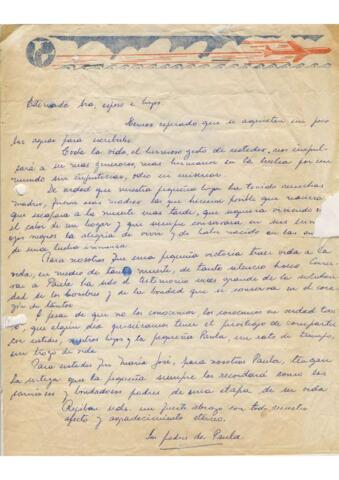 Estimada Sra, esposo e hijos
Hemos esperado que se aquieten un poco
las aguas para escribirles.
Toda la vida, el hermoso gesto de ustedes, nos impul-
sará a ser mas generosos, mas hermanos en la lucha por un
mundo sin injusticias, odio ni miseria.
Es verdad que nuestra pequeña hija ha tenido muchas
madres, fueron esas madres las que hicieron posible que naciera
que escapara a la muerte mas tarde, que siguiera viviendo en
el calor de un hogar y que siempre conservara en sus
ojos negros la alegría de vivir y de haber nacido en las
de una lucha
Para nosotros fue una pequeña victoria traer vida a la
vida, en medio de tanta muerte, de tanto silencio
a Paula ha sido el testimonio mas grande de la solidari-
dad de los hombres y de la bondad que se conserva en el cora-
zón de tantos.
A pesar de que no los conocemos, los conocemos en verdad tan-
to, que algún día quisieramos tener el privilegio de compartir
con ustedes, nuestros hijos y la pequeña Paula, un rato de tiempo,
un trozo de vida.
Para ustedes fue María José, para nosotros Paula, tengan
la certeza que la pequeña siempre los recordará como los
y bondadosos padres de una etapa de su vida
Reciban uds. un fuerte abrazo con todo nuestro
afecto y agradecimiento eterno.
Los padres de Paula